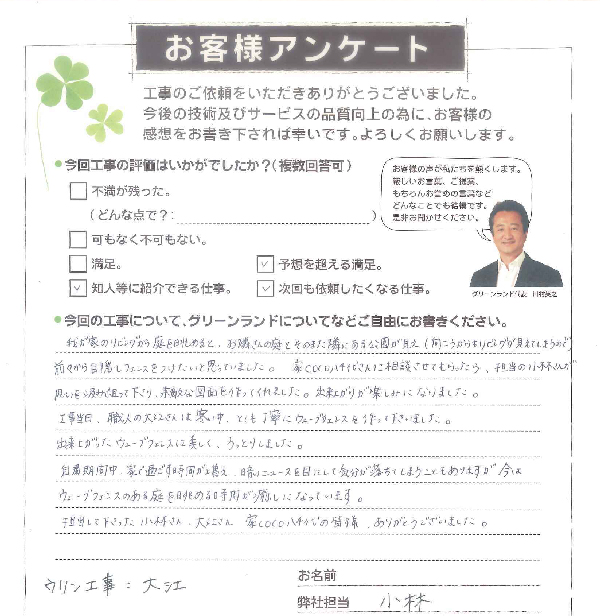 お客様アンケート
工事のご依頼をいただきありがとうございました。
今後の技術及びサービスの品質向上の為に、お客様の
感想をお書き下されば幸いです。よろしくお願いします。
今回工事の評価はいかがでしたか？（複数回答可）
不満が残った。
（どんな点で？：　　　　　）
可もなく不可もない。
満足。
予想を超える満足。
知人等に紹介できる仕事。
次回も依頼したくなる仕事。
お客様の声が私たちを無くします。
厳しいお言葉、ご提案、
もちろんお誉めの言葉など
どんなことでも結構です。
是非お聞かせください。
グリーンランド代表
今回の工事について、グリーンランドについてなどご自由にお書きください。
我が家のリビングから庭を眺めると、お隣さんの庭とそのまた隣にある公園が見え（向こうからもリビングが見えてしまうので）
前々から目隠しフェンスをつけたいと思っていました。家COCOハチイチさんに相談させてもらったら、担当の小林さんが
思いを汲み取って下り、素敵な図面を作ってくれました。出来上がりが楽しみになりました。
工事当日、職人の大江さんは寒い中、とても丁寧にウェーブフェンスを作って下さいました。
出来上がったウェーブフェンスは美しく、うっとりしました。
自粛期間中、家で過ごす時間が増え、暗いニュースを目にして気分が落ちてしまうこともありますが今は
ウェーブフェンスのある庭を眺める時間が癒しになっています。
担当して下さった小林さん、大江さん 家COCOハチイチの皆様、ありがとうございました。
ウリン工事：大江
お名前
弊社担当 小林